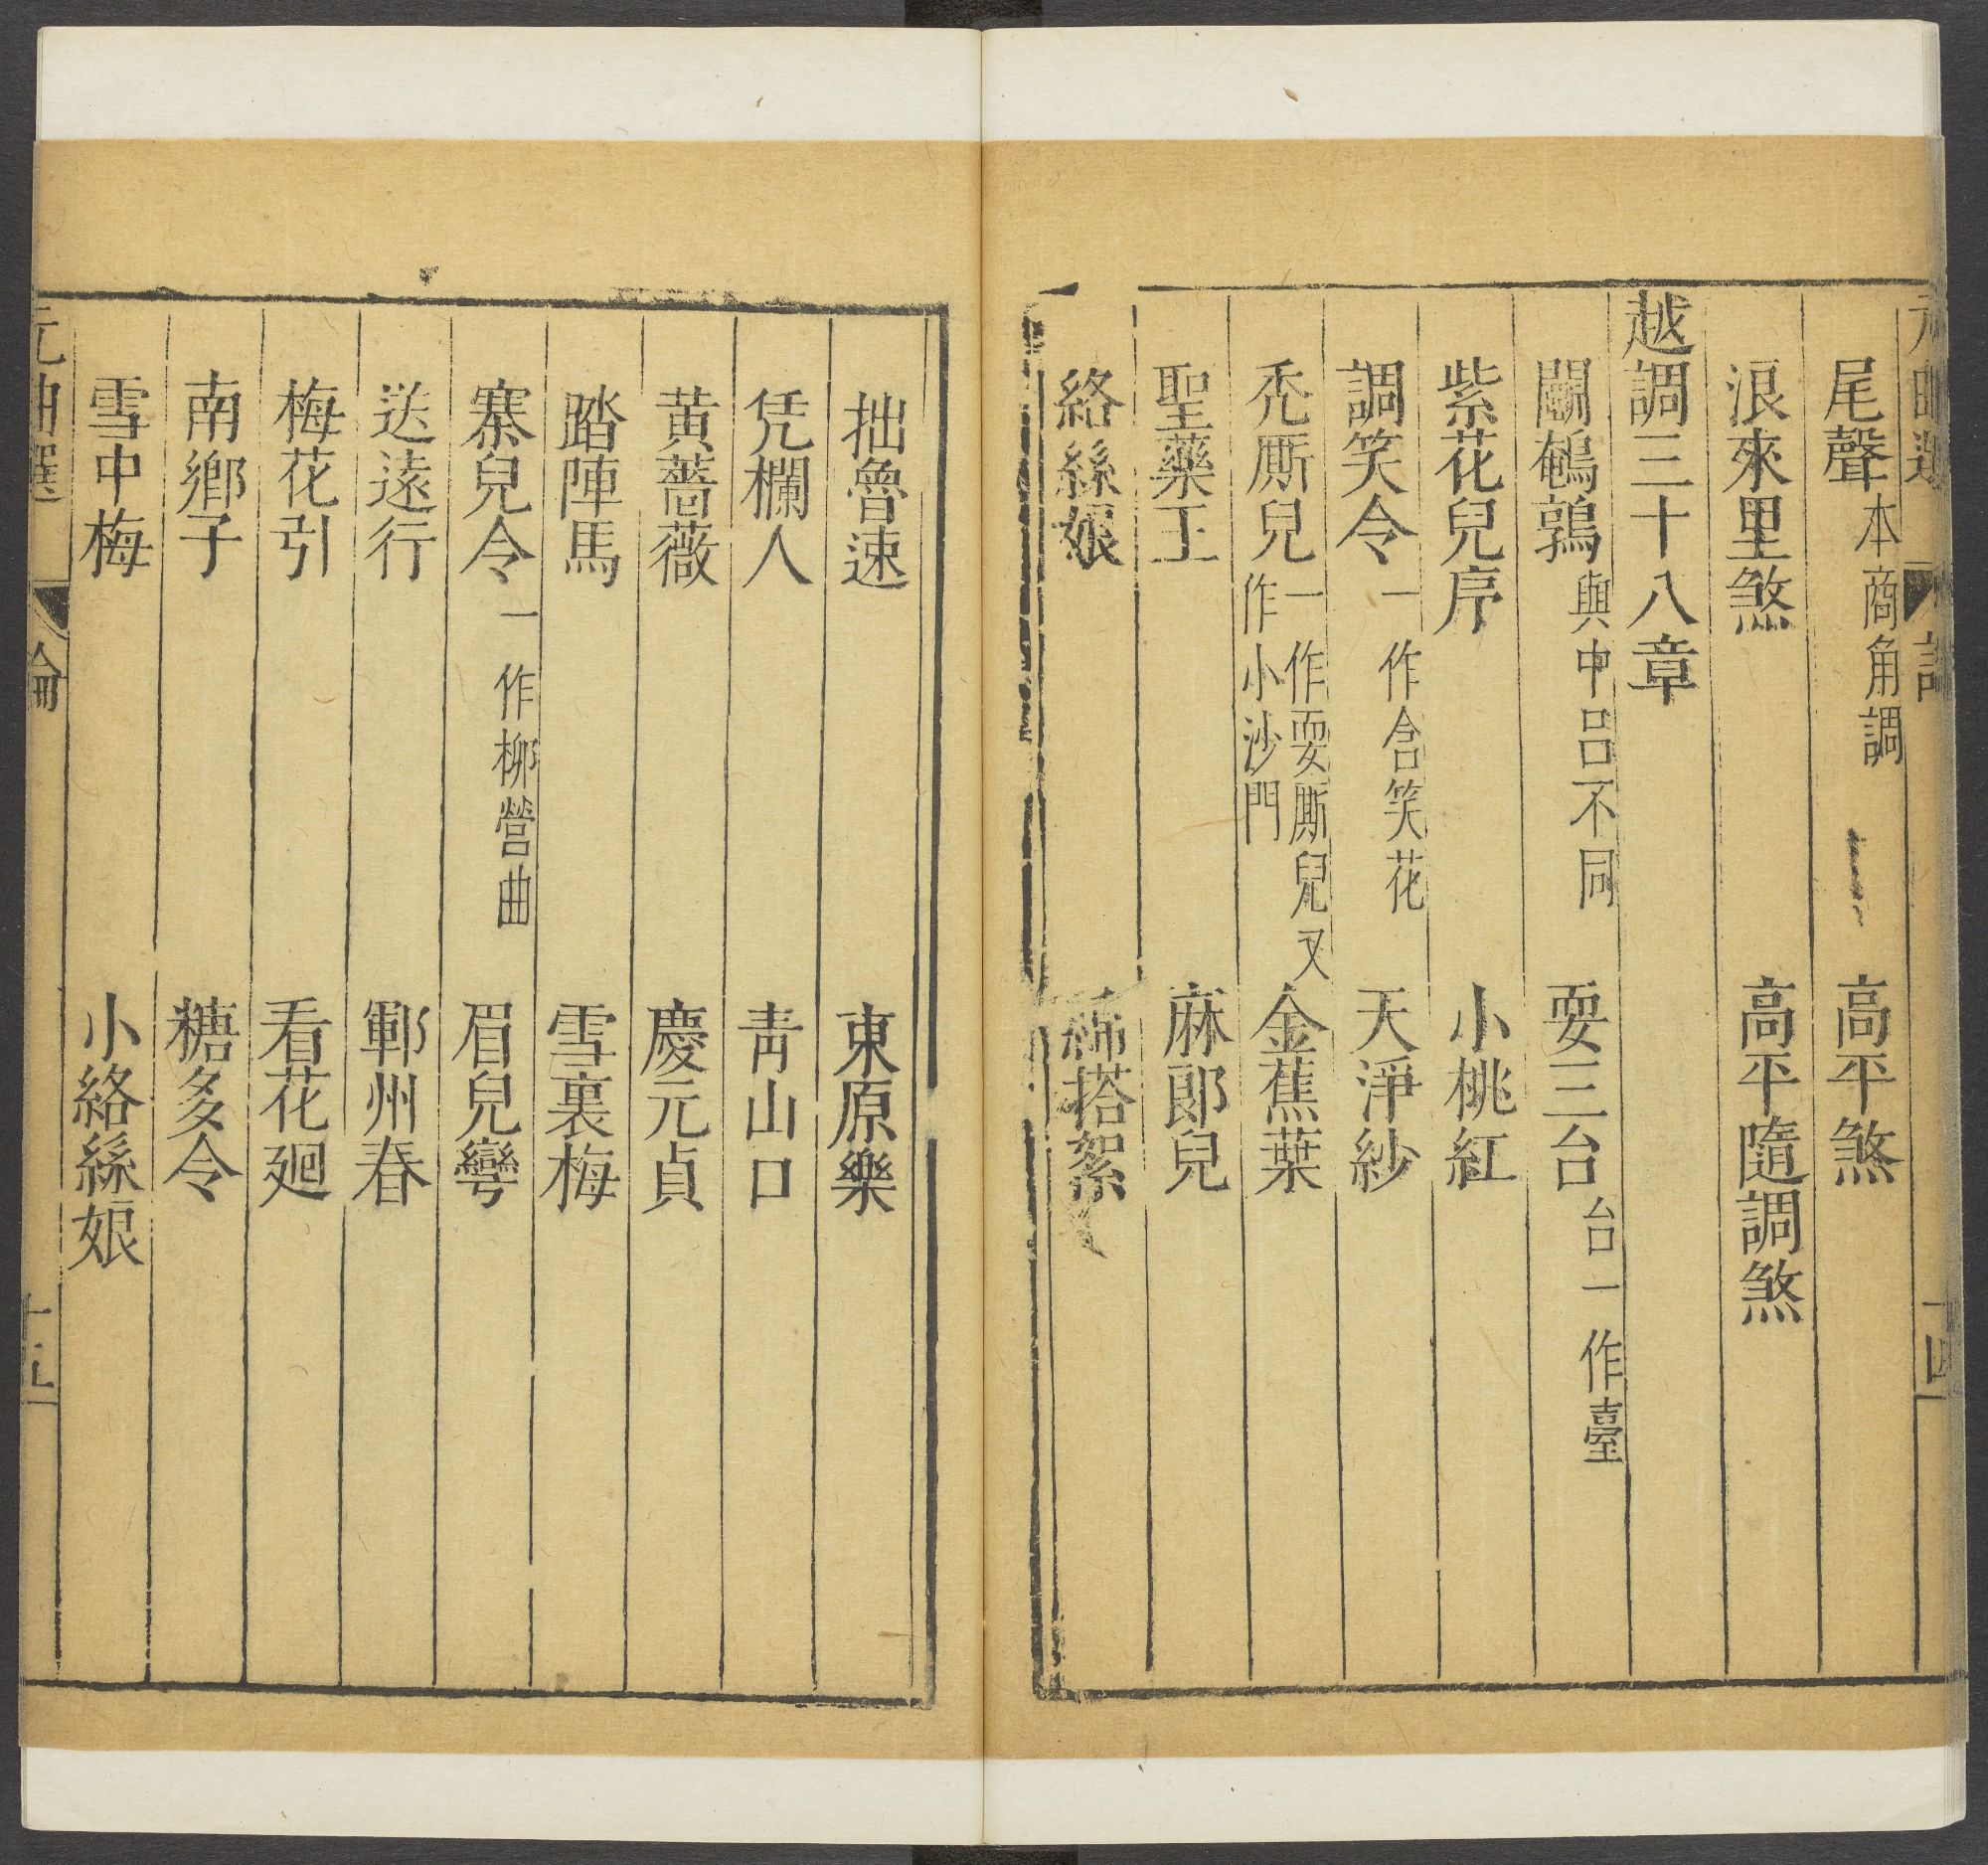 尾聲 本商角調 高平煞
浪來里煞 高平隨調煞
越調三十八章
鬭鵪鶉 與中呂不同 耍三台 台一作臺
紫花兒序 小桃紅
調笑令 一作含笑花 天淨紗
禿厮兒 一作耍厮兒又作小沙門 金蕉葉
聖藥王 麻郎兒
絡絲娘 綿搭絮
拙魯速 東原樂
凭欄人 青山口
黄薔薇 慶元貞
踏陣馬 雪裏梅
寨兒令 一作柳營曲 眉兒彎
送遠行 鄆州春
梅花引 看花廻
南鄉子 糖多令
雪中梅 小絡絲娘
元曲選 論 十五